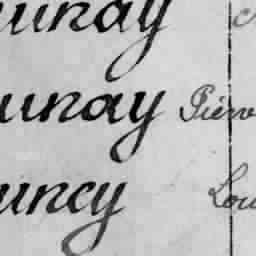 unay
unay Pierre
uncy Lou